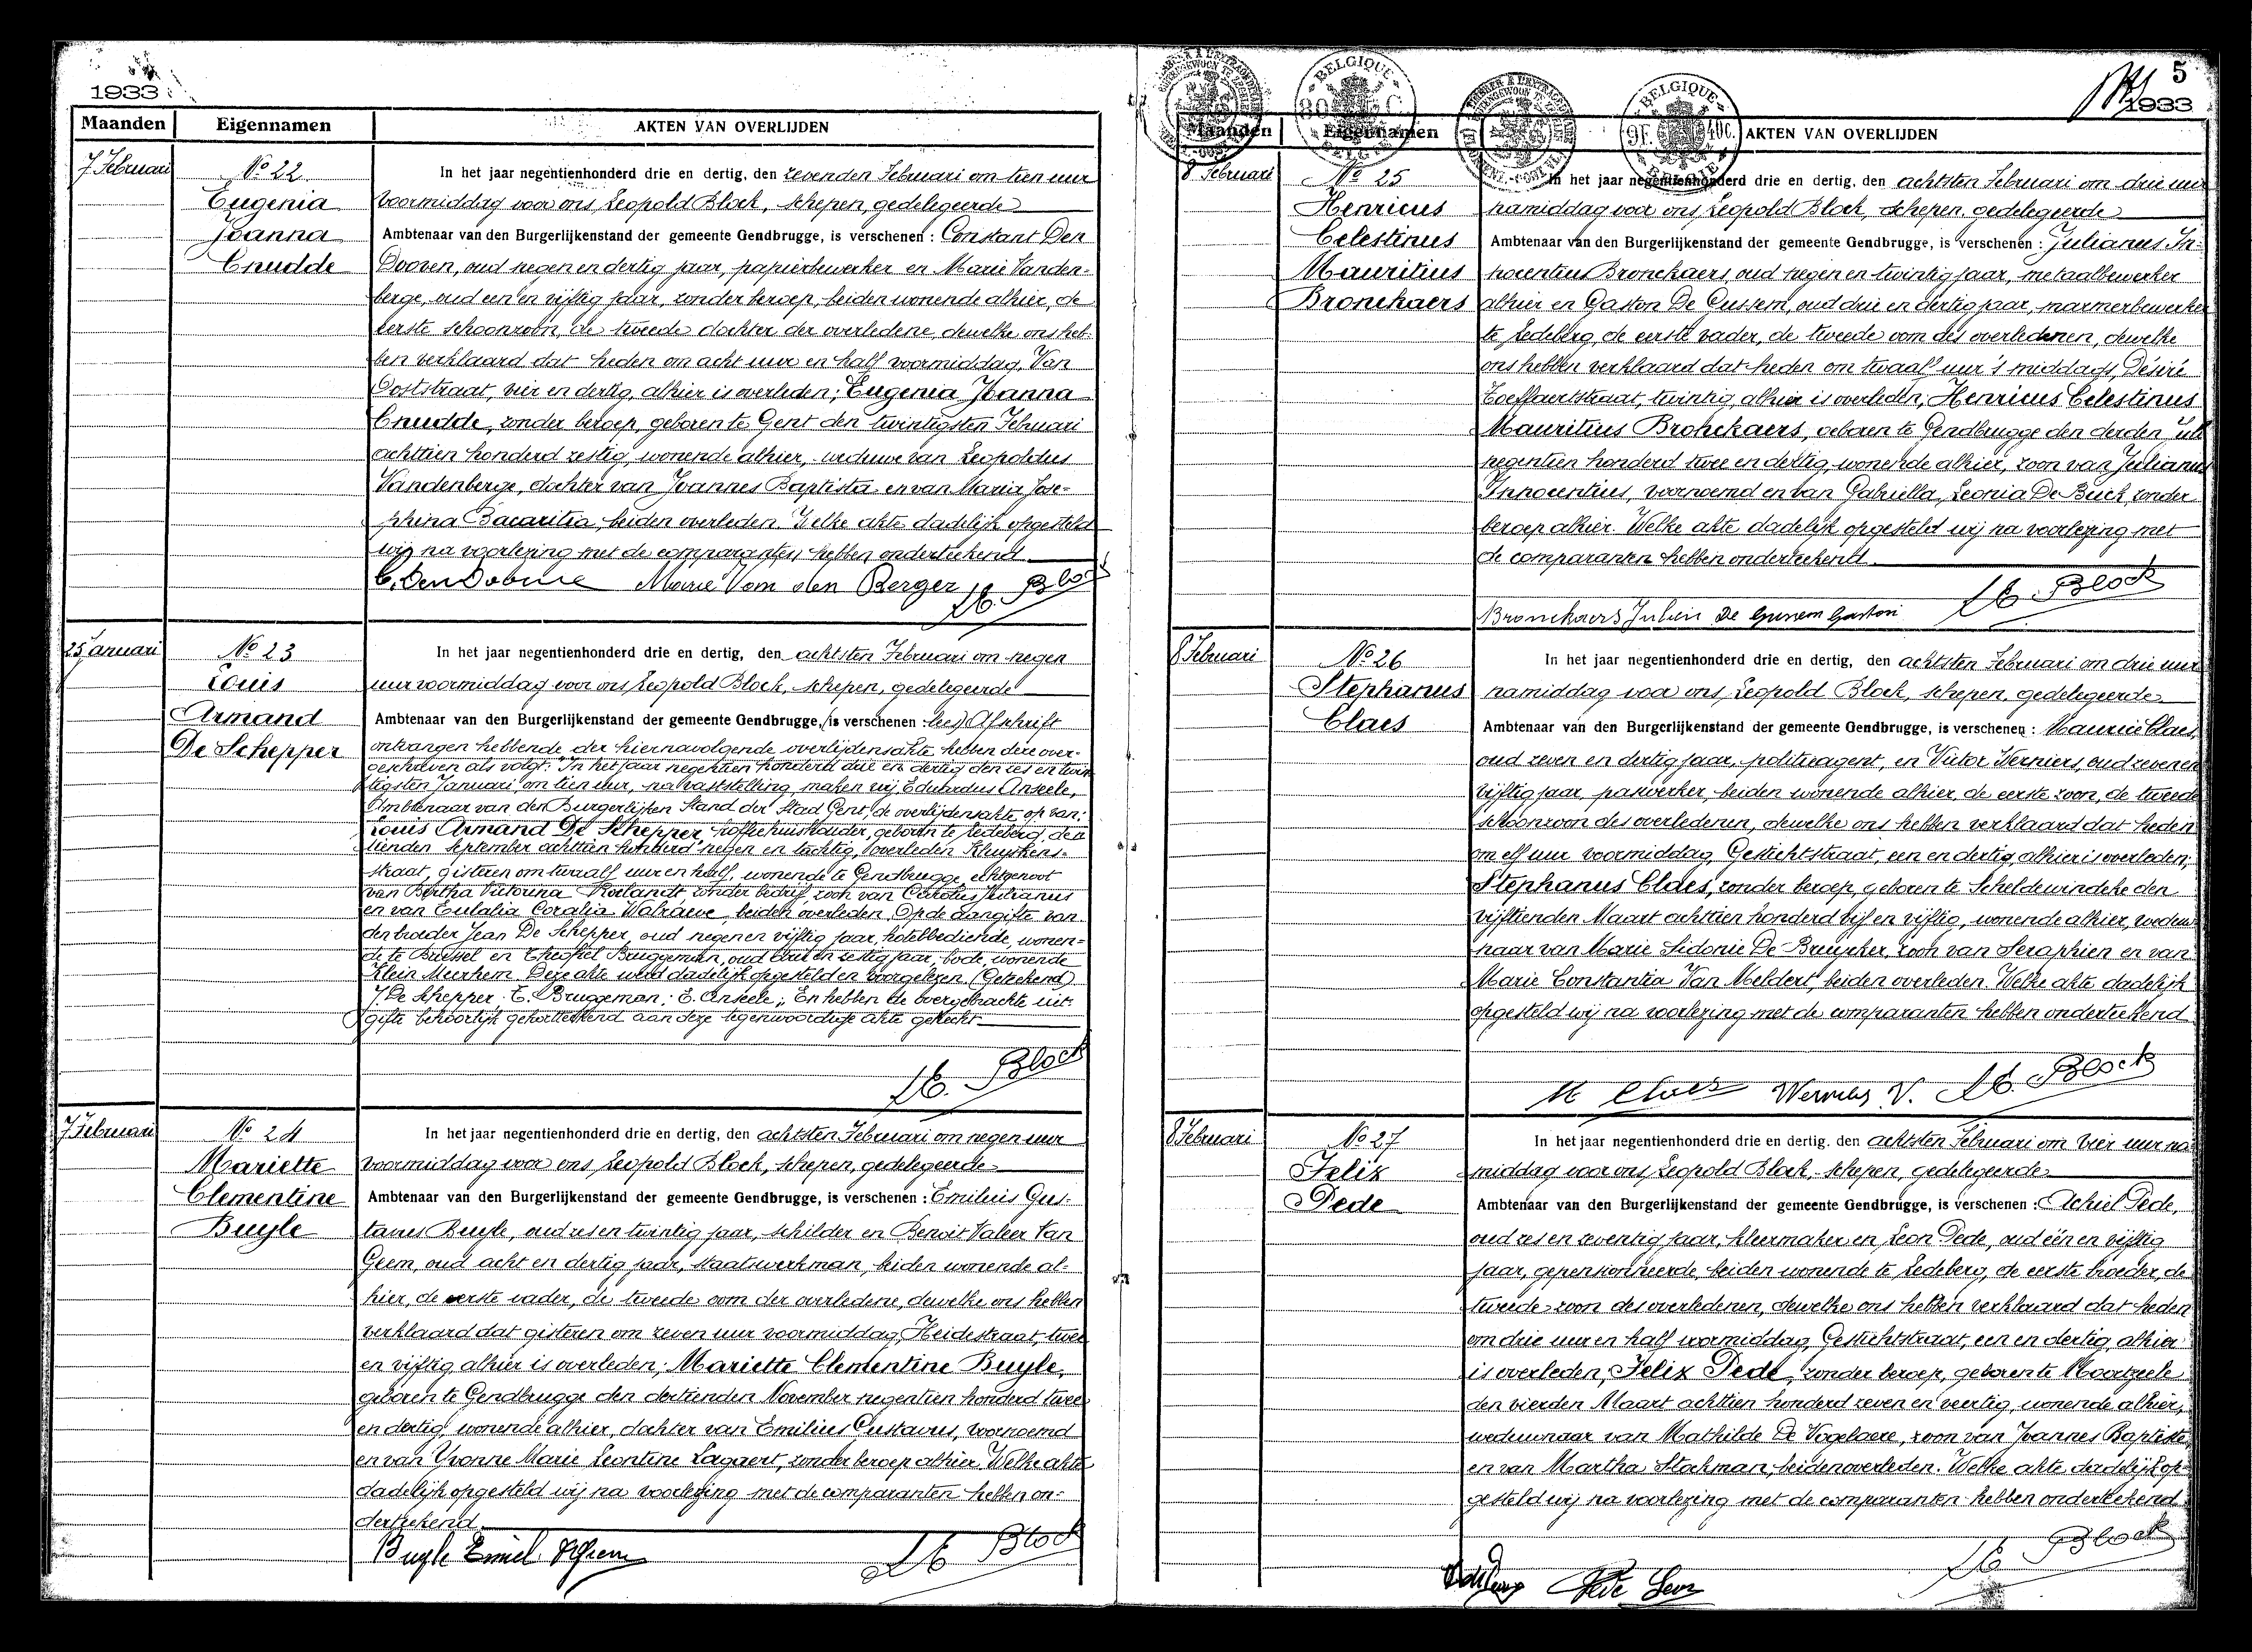 1933
Maanden
Eigennamen
AKTEN VAN OVERLIJDEN
7 Februari
No 22
Eugenia
Joanna
Cnudde
In het jaar negentienhonderd drie en dertig, den zevenden Februari om tien uur
voormiddag voor ons Leopold Block, schepen, gedelegeerde
Ambtenaar van den Burgerlijkenstand der gemeente Gendbrugge, is verschenen : Constant Den
Dooven, oud negen en dertig jaar, papierbewerker en Marie Vanden-
berge, oud een en vijftig jaar, zonder beroep, beiden wonende alhier, de
eerste schoonzoon, de tweede dochter der overledene, dewelke ons heb-
ben verklaard dat heden om acht uur en half voormiddag, Van
Ooststraat, vier en dertig, alhier is overleden; Eugenia Joanna
Cnudde, zonder beroep, geboren te Gent den twintigsten Februari
achttien honderd zestig, wonende alhier, weduwe van Leopoldus
Vandenberge, dochter van Joannes Baptista en van Maria Jose-
phina Bacaritia, beiden overleden. Welke akte dadelijk opgesteld
wij na voorlezing met de comparanten hebben onderteekend
Marie Van den Berger L. Block
25 Januari
No 23
Louis
Armand
De Schepper
In het jaar negentienhonderd drie en dertig, den achtsten Februari om negen
uur voormiddag voor ons Leopold Block, schepen, gedelegeerde
Ambtenaar van den Burgerlijkenstand der gemeente Gendbrugge, (is verschenen : lees) Afschrift
ontvangen hebbende der hiernavolgende overlijdensakte hebben deze over-
geschreven als volgt: In het jaar negentien honderd drie en dertig den zes en twin
tigsten Januari, om tien uur, na vaststelling, maken wij Eduardus Anseele,
Ambtenaar van den Burgerlijken Stand der Stad Gent, de overlijdensakte op van:
Louis Armand De Schepper, koffiehuishouder, geboren te Ledeberg, den
tienden September achttien honderd negen en tachtig, overleden Kluyskens-
straat, gisteren om twaalf uur en half, wonende te Gendbrugge, echtgenoot
van Bertha Victorina Roelandt zonder bedrijf, zoon van Carolus Julianus
en van Eulalia Coralia Walraeve, beiden overleden. Op de aangifte van
den broeder Jean De Schepper, oud negen en vijftig jaar, hotelbediende, wonen-
de te Brussel en Theofiel Bruggeman, oud drie en zestig jaar, bode, wonende
Klein Meerhem. Deze akte werd dadelijk opgesteld en voorgelezen. (Geteekend)
J. De Schepper; T. Bruggeman; E. Anseele; En hebben de overgebrachte uit-
gifte behoorlijk gekortteekend aan deze tegenwoordige akte gehecht
L. Block
7 Februari
No 24
Mariette
Clementine
Buyle
In het jaar negentienhonderd drie en dertig, den achtsten Februari om negen uur
voormiddag voor ons Leopold Block, schepen, gedelegeerde
Ambtenaar van den Burgerlijkenstand der gemeente Gendbrugge, is verschenen : Emilius Gus-
tavus Buyle, oud zes en twintig jaar, schilder en Benoit Valeer Van
Geem, oud acht en dertig jaar, staatswerkman, beiden wonende al-
hier, de eerste vader, de tweede oom der overledene, dewelke ons hebben
verklaard dat gisteren om zeven uur voormiddag, Heidestraat, twee
en vijftig, alhier is overleden; Mariette Clementine Buyle,
geboren te Gendbrugge den dertienden November negentien honderd twee
en dertig, wonende alhier, dochter van Emilius Gustavus, voornoemd
en van Yvonne Marie Leontine Lagaert, zonder beroep alhier. Welke akte
dadelijk opgesteld wij na voorlezing met de comparanten hebben on-
derteekend
Buyle Emiel L. Block
5
1933
BELGIQUE
BELGIË
BELGIQUE
BELGIË
Maanden
Eigennamen
AKTEN VAN OVERLIJDEN
8 Februari
No 25
Henricus
Celestinus
Mauritius
Bronckaers
In het jaar negentienhonderd drie en dertig, den achtsten Februari om drie uur
namiddag voor ons Leopold Block, schepen, gedelegeerde
Ambtenaar van den Burgerlijkenstand der gemeente Gendbrugge, is verschenen : Julianus In-
nocentius Bronckaers, oud negen en twintig jaar, metaalbewerker
alhier en Gaston De Gussem, oud drie en dertig jaar, marmerbewerker
te Ledeberg, de eerste vader, de tweede oom des overledenen, dewelke
ons hebben verklaard dat heden om twaalf uur 's middags, Désiré
Toeffaertstraat, twintig, alhier is overleden; Henricus Celestinus
Mauritius Bronckaers, geboren te Gendbrugge den derden Juli
negentien honderd twee en dertig, wonende alhier, zoon van Julianus
Innocentius, voornoemd en van Gabriella Leonia De Buck, zonder
beroep alhier. Welke akte dadelijk opgesteld wij na voorlezing met
de comparanten hebben onderteekend
L. Block
Bronckaers Julien De Gussem Gaston
8 Februari
No 26
Stephanus
Claes
In het jaar negentienhonderd drie en dertig, den achtsten Februari om drie uur
namiddag voor ons Leopold Block, schepen, gedelegeerde
Ambtenaar van den Burgerlijkenstand der gemeente Gendbrugge, is verschenen : Maurice Claes,
oud zeven en dertig jaar, politieagent, en Victor Werniers, oud zeven en
vijftig jaar, paswerker, beiden wonende alhier, de eerste zoon, de tweede
schoonzoon des overledenen, dewelke ons hebben verklaard dat heden
om elf uur voormiddag, Gestichtstraat, een en dertig, alhier is overleden;
Stephanus Claes, zonder beroep, geboren te Scheldewindeke den
vijftienden Maart achttien honderd vijf en vijftig, wonende alhier, weduw-
naar van Marie Sidonie De Bruycker, zoon van Seraphien en van
Marie Constantia Van Meldert, beiden overleden. Welke akte dadelijk
opgesteld wij na voorlezing met de comparanten hebben onderteekend
M Claes Werniers V. L. Block
8 Februari
No 27
Felix
Pede
In het jaar negentienhonderd drie en dertig. den achtsten Februari om vier uur na
middag voor ons Leopold Block, schepen, gedelegeerde
Ambtenaar van den Burgerlijkenstand der gemeente Gendbrugge, is verschenen : Achiel Pede,
oud zes en zeventig jaar, kleermaker en Leon Pede, oud één en vijftig
jaar, gepensionneerde, beiden wonende te Ledeberg, de eerste broeder, de
tweede zoon des overledenen, dewelke ons hebben verklaard dat heden
om drie uur en half voormiddag, Gestichtstraat, een en dertig, alhier
is overleden; Felix Pede, zonder beroep, geboren te Moortzeele
den vierden Maart achttien honderd zeven en veertig, wonende alhier,
weduwnaar van Mathilde De Vogelaere, zoon van Joannes Baptiste
en van Martha Stockman, beiden overleden. Welke akte dadelijk op-
gesteld wij na voorlezing met de comparanten hebben onderteekend
L. Block
Pede Leon